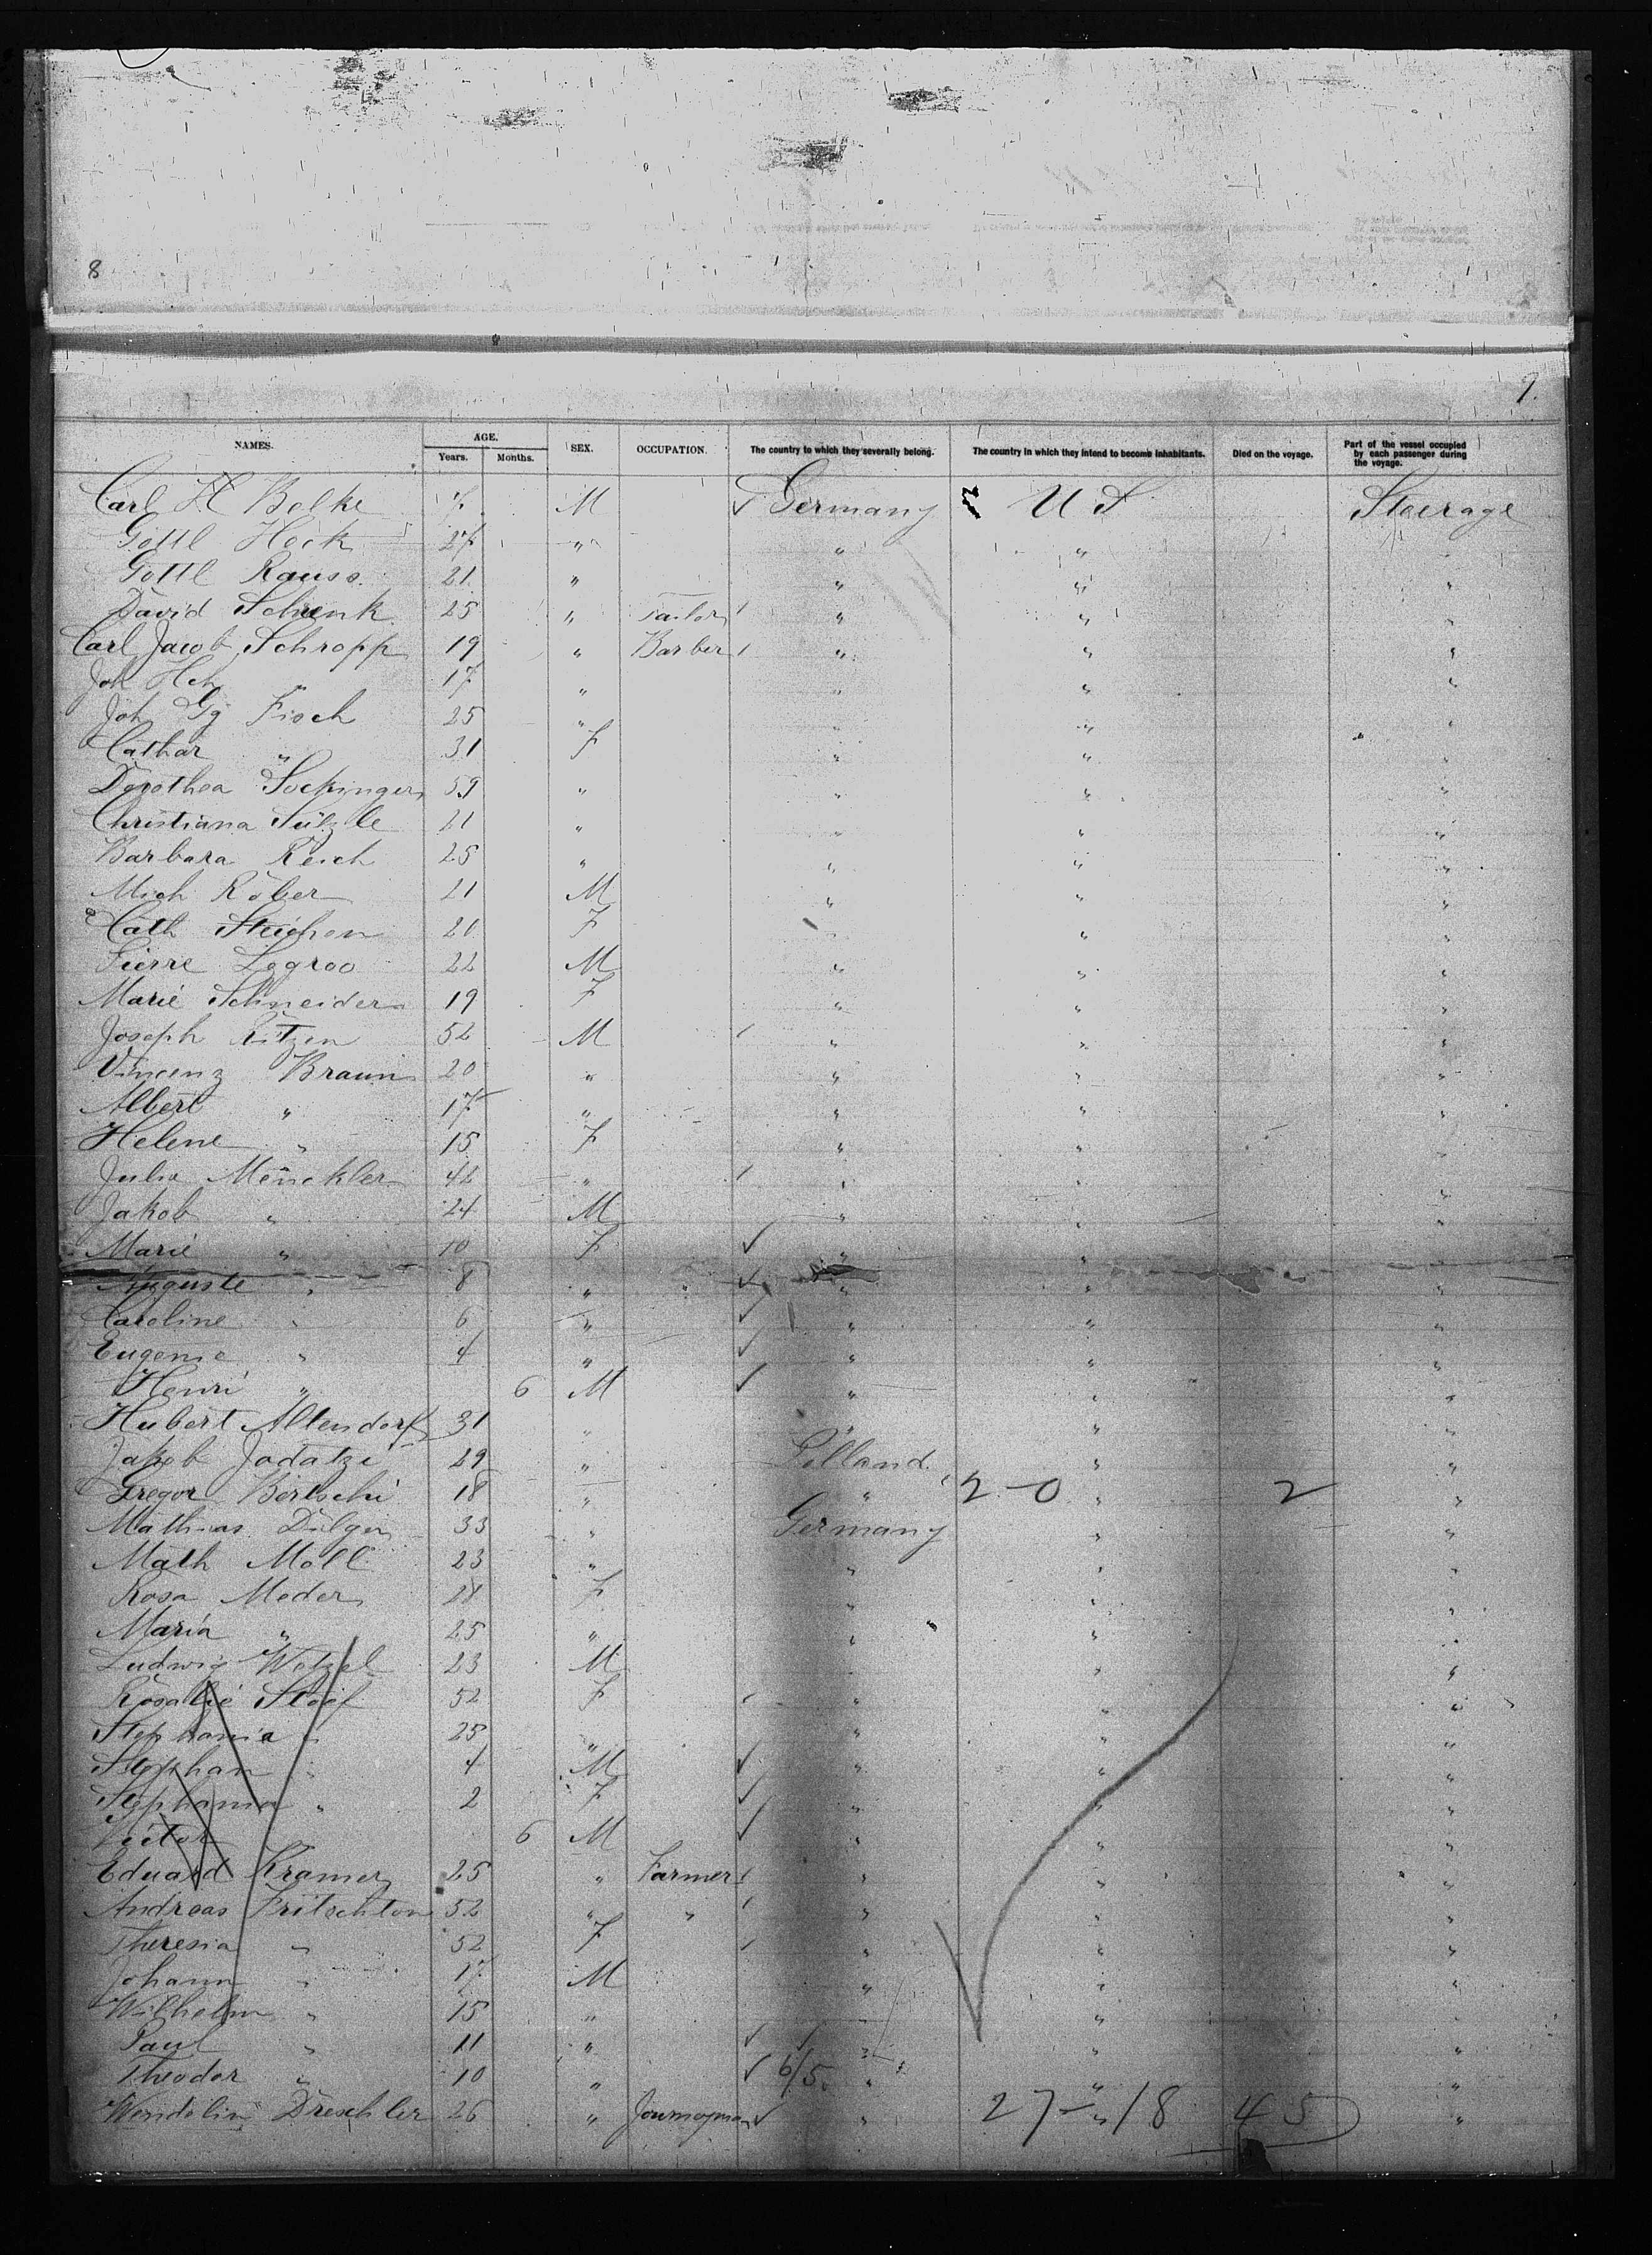 8
9.
NAMES. AGE. Years. Months. SEX. OCCUPATION. The country to which they severally belong. The country in which they intend to become inhabitants. Died on the voyage. Part of the vessel occupied by each passenger during the voyage.
Carl H Bolke M ✓ Germany U S Steerage
Gottl Heck 27 " " "
Gottl Rauss 21 " " " "
David Schenk 25 " Tailor " " "
Carl Jacob Schropp 19 " Barber " " "
Joh Hch " 17 " " " "
Joh Gg Fisch 25 " " " "
Cathar " 31 F " " "
Dorothea Sockinger 59 " " " "
Christiana Sülzle 21 " " " "
Barbara Reich 25 " " " "
Mich Röber 21 M " " "
Cath Steichen 20 F " " "
Pierre Legroo 22 M " " "
Marie Schneider 19 F " " "
Joseph Ritzen 52 M " " "
Vincenz Braun 20 " " " "
Albert " 17 " " " "
Helene " 15 F " "
Julie Menckler 42 " " " "
Jakob " 24 M " " "
Marie " 10 F ✓ " "
Auguste " 8 " ✓ " " "
Caroline " 6 " ✓ " " "
Eugenie " 4 " ✓ " " "
Henri " 6 M ✓ " " "
Hubert Altendorf 31 " " " "
Jakob Jadatzi 29 " " "
Gregor Bertschi 18 " " 2-0 " 2 "
Mathias Dilger 33 " Germany " "
Math Moll 23 " " " "
Rosa Meder 28 F " " "
Maria " 25 " " " "
Ludwig Wetzel 23 M " " "
Rosalie 52 F " " "
Stephania " 25 " " " "
Stephan " 4 M ✓ " " "
Stephania " 2 F ✓ " " "
Victor 6 M ✓ " " "
Eduard Kramer 25 " Farmer " " "
Andreas Fritschton 52 " " " " "
Theresia " 52 F " " "
Johann " 17 M " " "
Wilhelm " 15 " " "
Paul " 11 " ✓ " " "
Theodor " 10 " ✓ 6/5 " " "
Wendelin Dreschler 26 " Journeyman ✓ " 27-"18 45 "